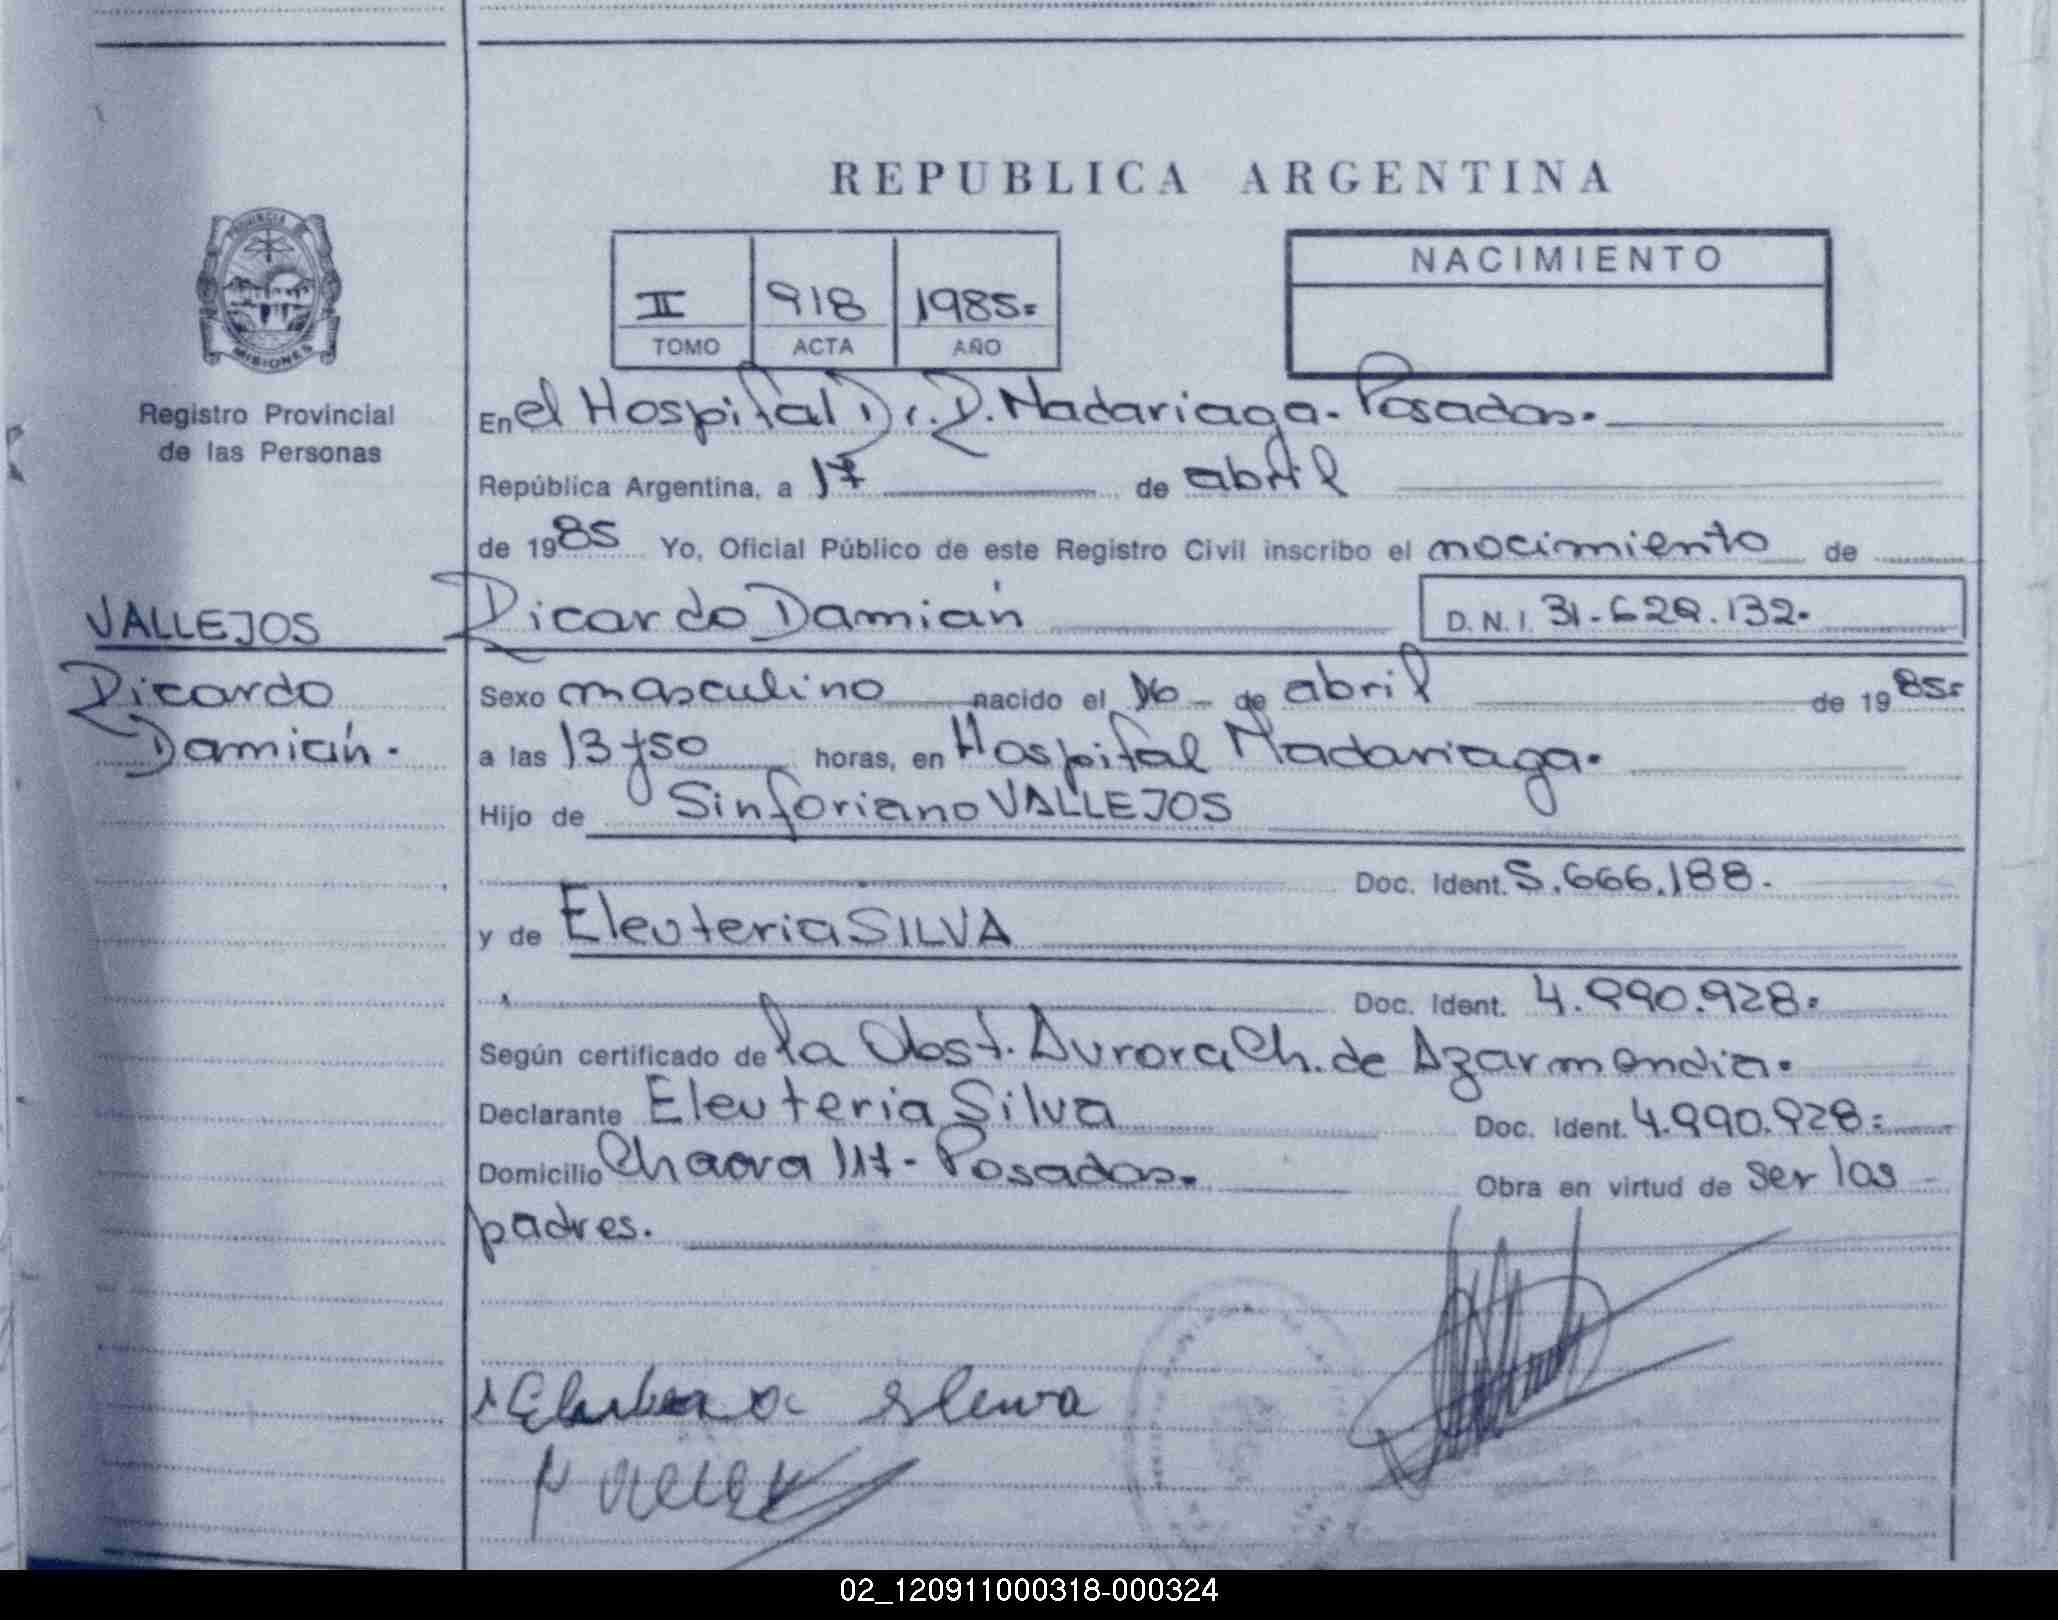 REPUBLICA ARGENTINA
PROVINCIA DE
MISIONES
Registro Provincial
de las Personas
II 918 1985=
TOMO ACTA AÑO
NACIMIENTO
En el Hospital Dr. R. Madariaga - Posadas.-
República Argentina, a 17 de abril
de 1985 Yo, Oficial Público de este Registro Civil inscribo el nacimiento de
Ricardo Damián D.N.I. 31.629.132.
VALLEJOS
Ricardo
Damián.
Sexo masculino nacido el 16 de abril de 1985=
a las 13 y 50 horas, en Hospital Madariaga.
Hijo de Sinforiano VALLEJOS
Doc. Ident. 5.666.188.
y de Eleuteria SILVA
Doc. Ident. 4.990.928.
Según certificado de la Obst. Aurora Ch. de Azarmendia.
Declarante Eleuteria Silva Doc. Ident. 4.990.928=
Domicilio Chacra 117 - Posadas. Obra en virtud de ser los
padres.
02_120911000318-000324